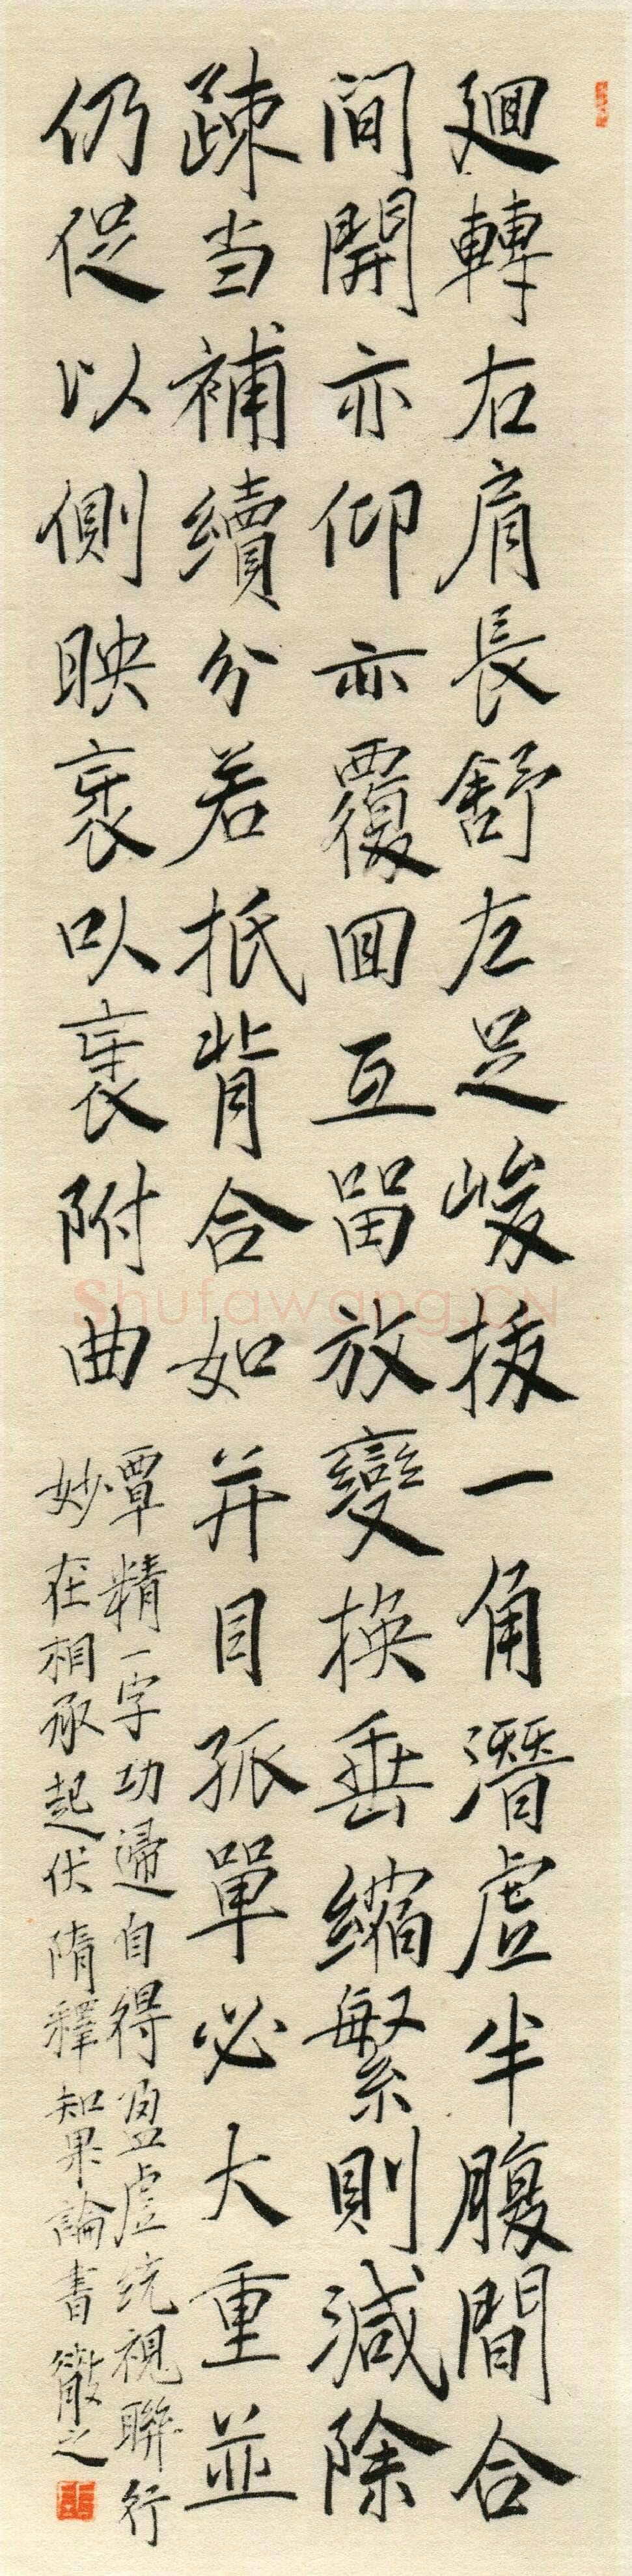 廻轉右肩長舒左足峻拔一角潛虛半腹間合
間開亦仰亦覆回互留放變換垂縮繁則減除
疎当補續分若抵背合如并目孤單必大重並
仍促以側映衺以衺附曲
覃精一字功歸自得盈虛統視聯行
妙在相承起伏隋釋智果論書徹之
Shufawang.CN